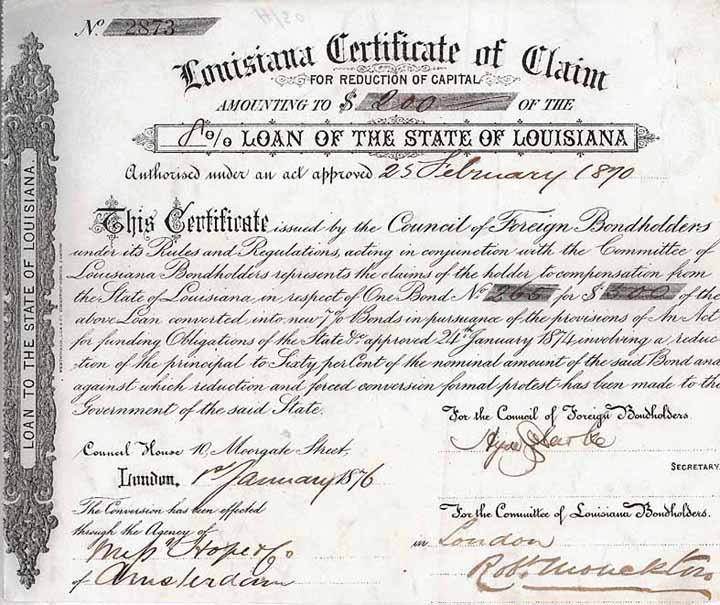 No. 2873
Louisiana Certificate of Claim
FOR REDUCTION OF CAPITAL
AMOUNTING TO $ 200 OF THE
8% LOAN OF THE STATE OF LOUISIANA
Authorised under an act approved 23 February 1870
This Certificate issued by the Council of Foreign Bondholders
under its Rules and Regulations, acting in conjunction with the Committee of
Louisiana Bondholders represents the claims of the holder to compensation from
the State of Louisiana, in respect of One Bond No. 265 for $ 500 of the
above Loan converted into new 7% Bonds in pursuance of the provisions of An Act
for funding Obligations of the State &c. approved 24th January 1874 involving a reduc-
tion of the principal to Sixty per Cent of the nominal amount of the said Bond and
against which reduction and forced conversion formal protest has been made to the
Government of the said State.
For the Council of Foreign Bondholders.
Hyde Clarke
SECRETARY
Council House 10, Moorgate Street,
London, 1st January 1876
The Conversion has been effected
through the Agency of
Messrs Hope & Co
of Amsterdam
For the Committee of Louisiana Bondholders.
in London
Robt Monckton
LOAN TO THE STATE OF LOUISIANA.